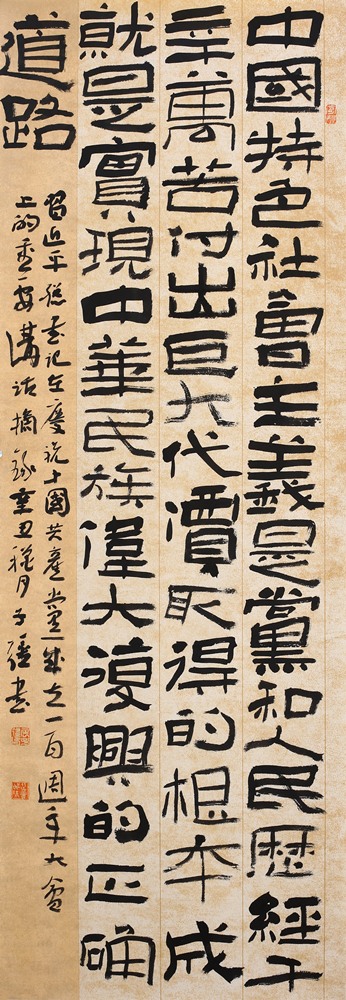 中國特色社會主義是黨和人民歷經千
辛萬苦付出巨大代價取得的根本成
就是實現中華民族偉大復興的正確
道路
習近平總書記在慶祝中國共產黨成立一百週年大會
上的重要講話摘錄辛丑月子書